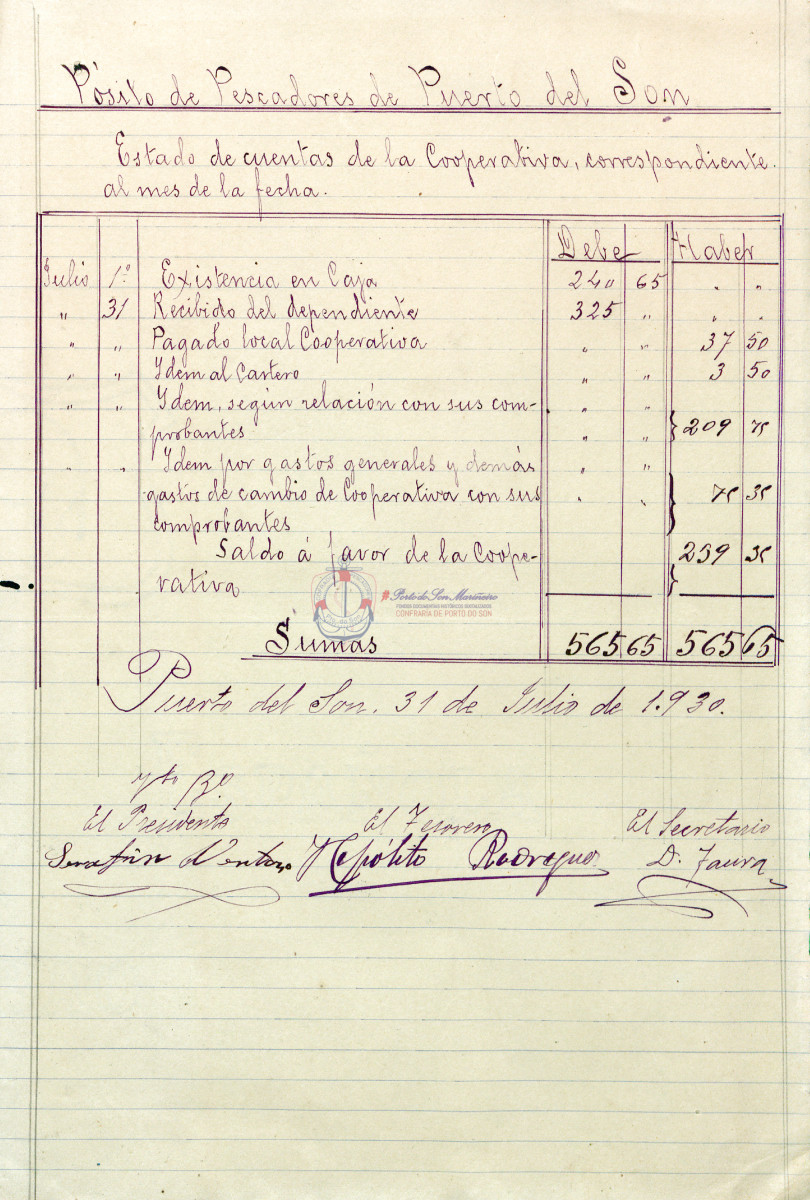 Pósito de Pescadores de Puerto del Son
Estado de cuentas de la Cooperativa, correspondiente
al mes de la fecha.
Debe Haber
Julio 1º Existencia en Caja 240 65 " "
" 31 Recibido del dependiente 325 " " "
" " Pagado local Cooperativa " " 37 50
" " Idem al Cartero " " 3 50
" " Idem, según relación con sus com-
probantes " " 209 75
" " Idem por gastos generales y demás " "
gastos de cambio de Cooperativa con sus " " 75 35
comprobantes
Saldo á favor de la Coope- 239 35
rativa
#Porto do Son Mariñeiro
FONDOS DOCUMENTAIS HISTÓRICOS DIXITALIZADOS
CONFRARÍA DE PORTO DO SON
Sumas 565 65 565 65
Puerto del Son, 31 de Julio de 1.930.
Vto Bº
El Presidente El Tesorero El Secretario
Serafín Hipólito Rodriguez D. Faura